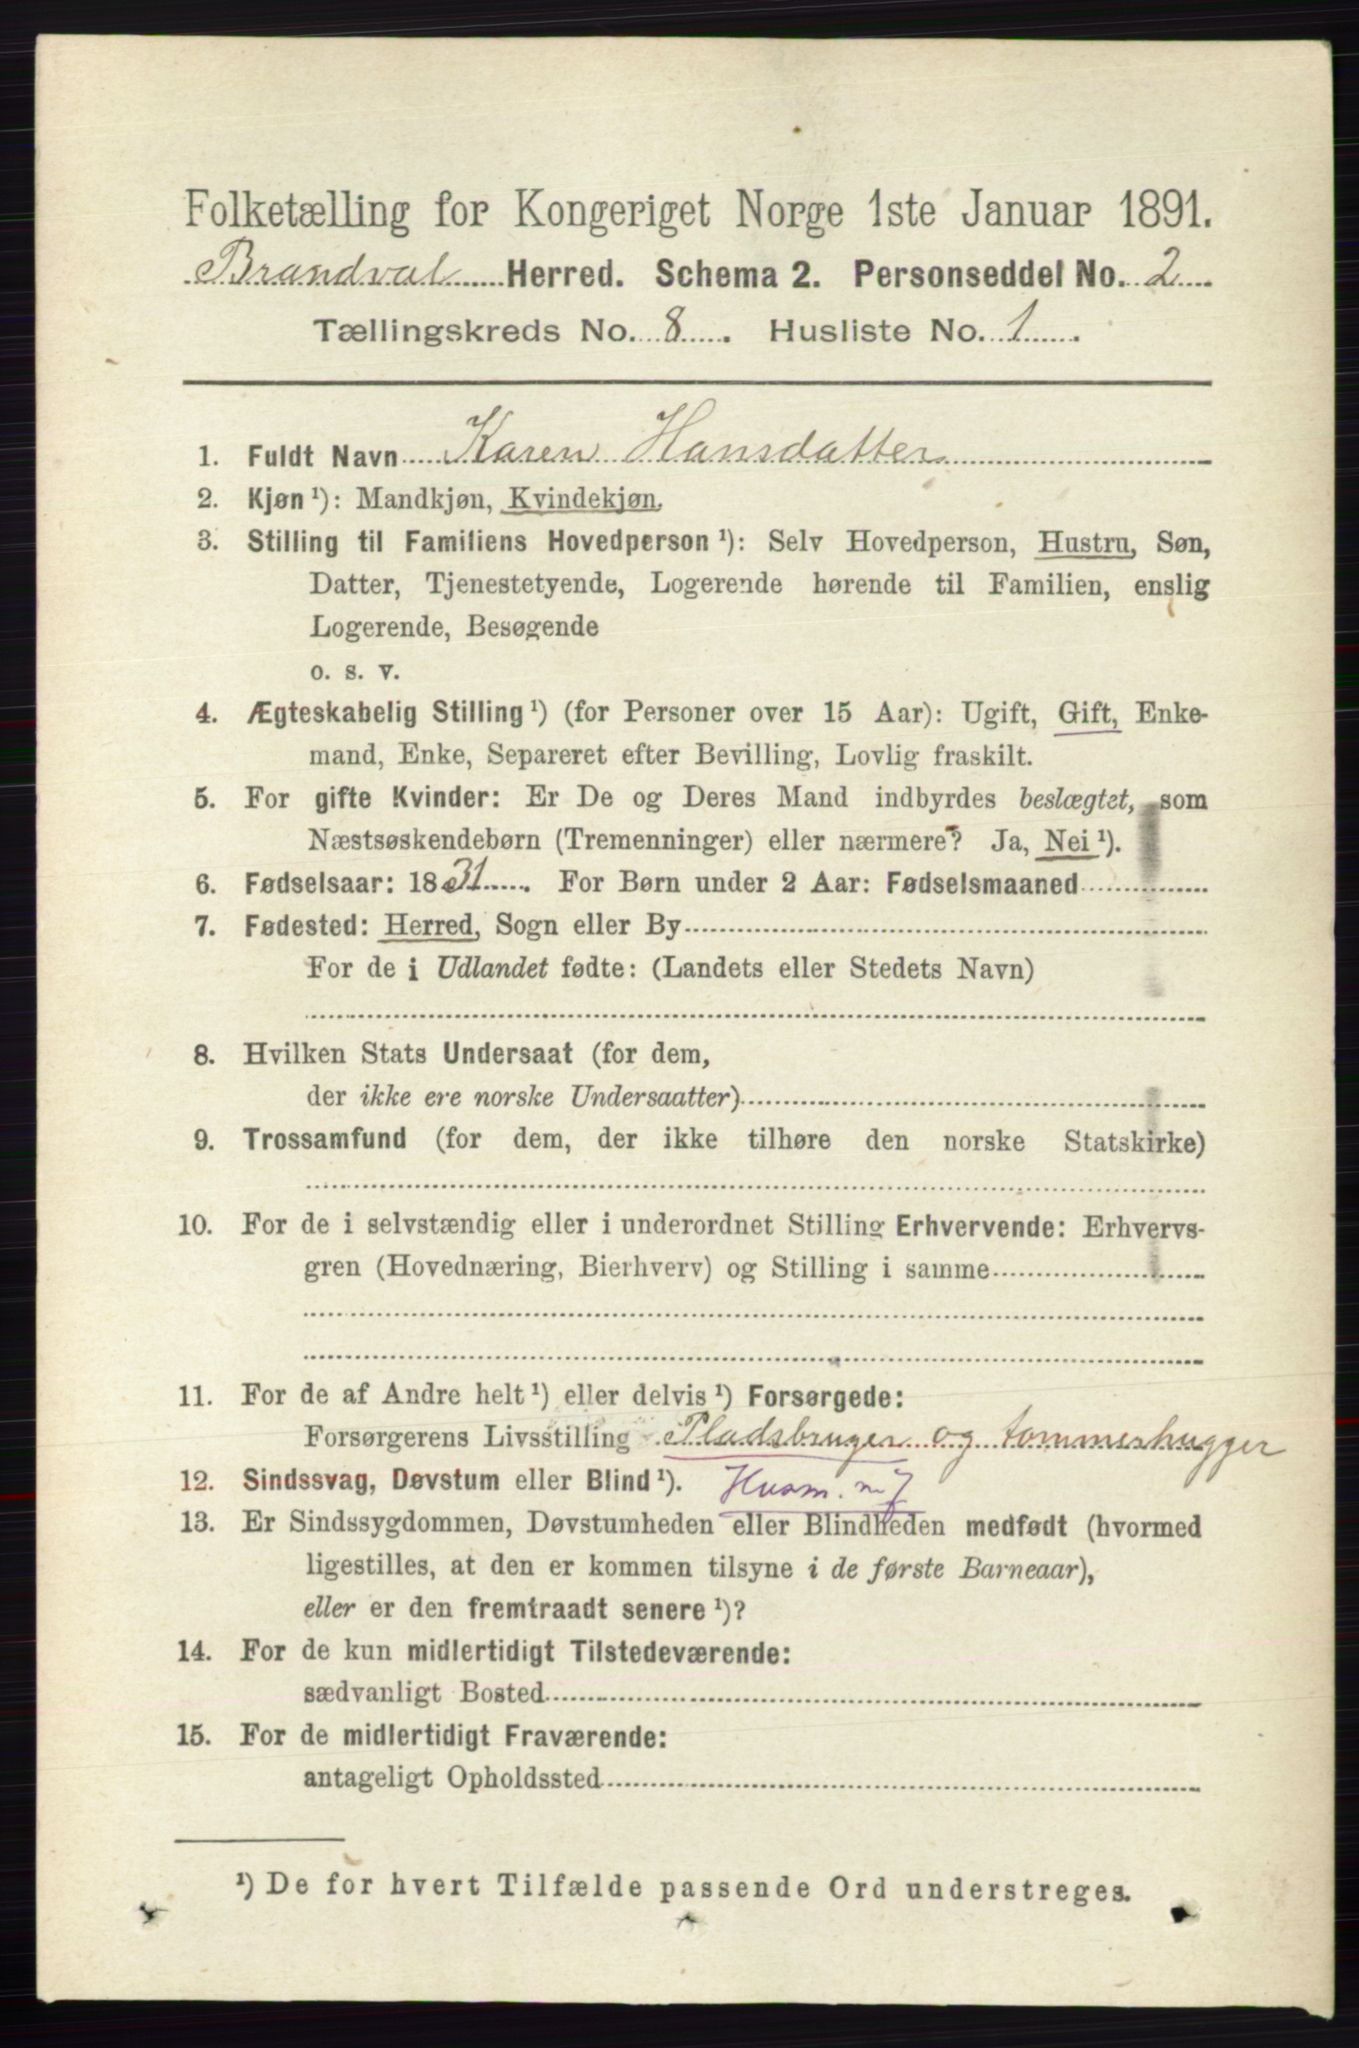 Folketælling for Kongeriget Norge 1ste Januar 1891.
Brandval Herred. Schema 2. Personseddel No. 2
Tællingskreds No. 8. Husliste No. 1.
1. Fuldt Navn Karen Hansdatter
2. Kjøn ¹): Mandkjøn, Kvindekjøn.
3. Stilling til Familiens Hovedperson ¹): Selv Hovedperson, Hustru, Søn,
Datter, Tjenestetyende, Logerende hørende til Familien, enslig
Logerende, Besøgende
o. s. v.
4. Ægteskabelig Stilling ¹) (for Personer over 15 Aar): Ugift, Gift, Enke-
mand, Enke, Separeret efter Bevilling, Lovlig fraskilt.
5. For gifte Kvinder: Er De og Deres Mand indbyrdes beslægtet, som
Næstsøskendebørn (Tremenninger) eller nærmere? Ja, Nei ¹).
6. Fødselsaar: 1831. For Børn under 2 Aar: Fødselsmaaned
7. Fødested: Herred, Sogn eller By
For de i Udlandet fødte: (Landets eller Stedets Navn)
8. Hvilken Stats Undersaat (for dem,
der ikke ere norske Undersaatter)
9. Trossamfund (for dem, der ikke tilhøre den norske Statskirke)
10. For de i selvstændig eller i underordnet Stilling Erhvervende: Erhvervs-
gren (Hovednæring, Bierhverv) og Stilling i samme
11. For de af Andre helt ¹) eller delvis ¹) Forsørgede:
Forsørgerens Livsstilling Pladsbruger og tømmerhugger
12. Sindssvag, Døvstum eller Blind ¹). Husm. m. J
13. Er Sindssygdommen, Døvstumheden eller Blindheden medfødt (hvormed
ligestilles, at den er kommen tilsyne i de første Barneaar),
eller er den fremtraadt senere ¹)?
14. For de kun midlertidigt Tilstedeværende:
sædvanligt Bosted
15. For de midlertidigt Fraværende:
antageligt Opholdssted
¹) De for hvert Tilfælde passende Ord understreges.